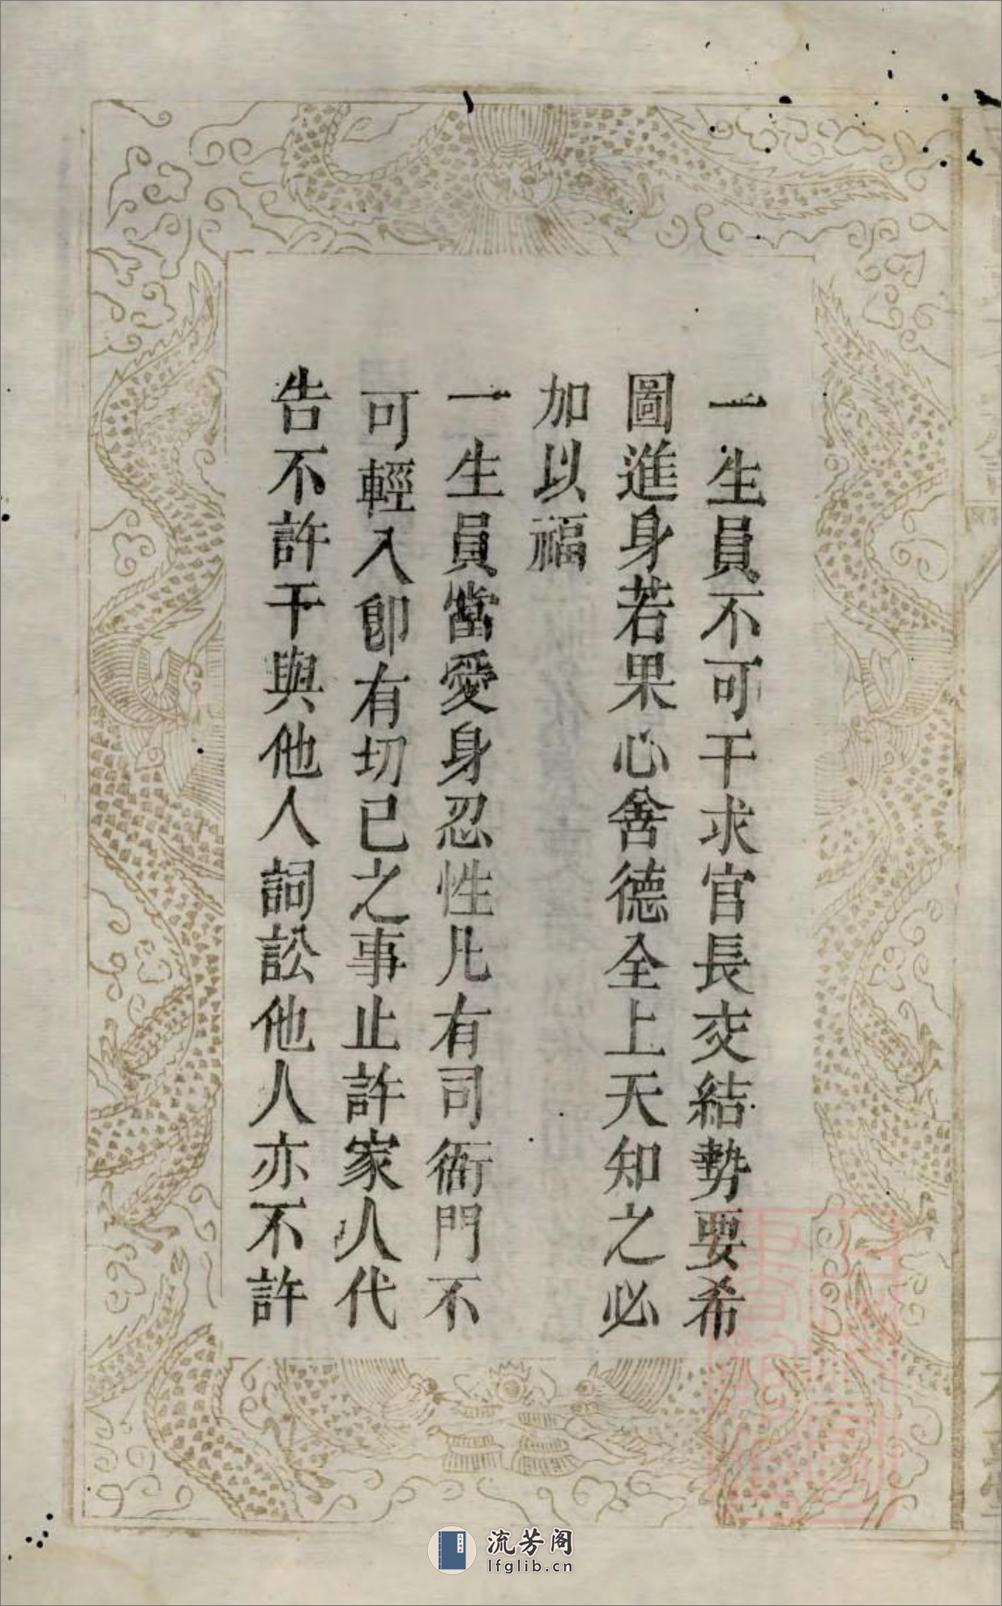 一生員不可干求官長交結勢要希
圖進身若果心舍德全上天知之必
加以福
一生員當愛身忍性凢有司衙門不
可輕入卽有切已之事止許家人代
告不許干與他人詞訟他人亦不許
流芳阁
lfglib.cn